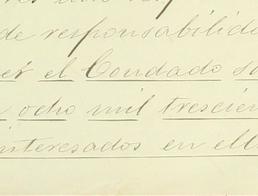 de responsabilida
el Condado s
ocho mil trescien
interesados en ell